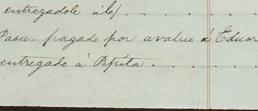 entregadole á
Pasc. pagado por avaluo á Eduar
entregado á Pepita